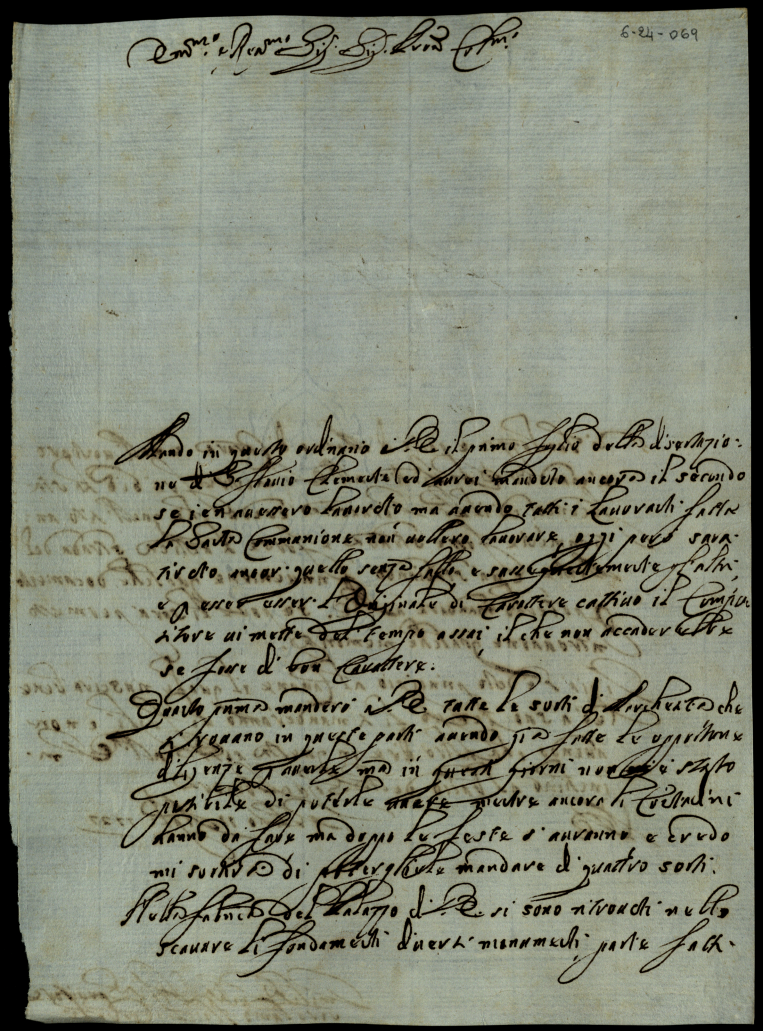 6-24-069
Em.mo e Rev.mo Sig. Sig. Pron Col.mo
Mando in questo ordinario a V.E. il primo foglio della disertazio=
ne di S. Flavio Clemente ed aurei mandato ancora il secondo
se i en avessero lavorato ma avendo tutti i Lavoranti fatta
la Santa Communione non vollero lavorare, oggi però sarà
tirato ancor quello senza fallo, e susseguentemente gl'altri,
e p esser l'Originale di Carattere cattivo il Compo
sitore ui mette del tempo assai, il che non accaderebbe
se fosse di bon Carattere.
Quanto prima manderò a V.E. tutte le sorti di che
si trovano in queste parti avendo già fatte le opportune
diligenze p averle, ma in questi giorni non è stato
possibile di poterle avere mentre ancora li Contadini
hanno da fare ma doppo le feste s'auranno e credo
mi sortirà di potergliele mandare di quattro sorti.
Nella fabrica del Palazzo di V.E. si sono ritrovati nello
scavare li fondamenti diversi monumenti, parte fatti